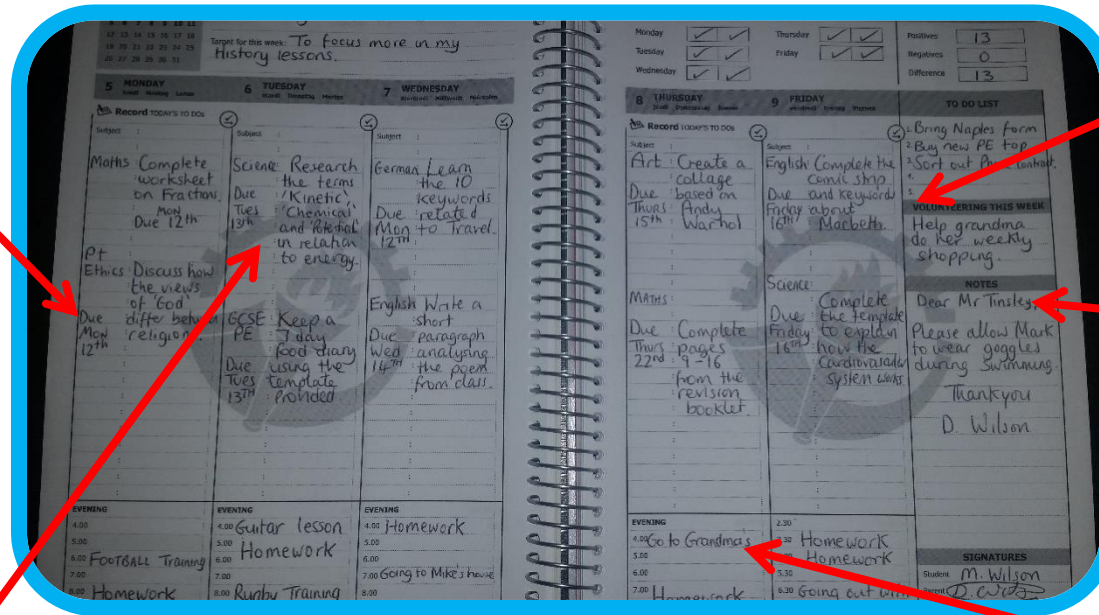 12 13 14 15 16 17 18
19 20 21 22 23 24 25
26 27 28 29 30 31
Target for this week: To focus more in my
History lessons.
5 MONDAY
6 TUESDAY
7 WEDNESDAY
Record TODAY'S TO DOs
Subject :
Maths : Complete
worksheet
on Fractions.
MON
Due 12th
Pt
Ethics : Discuss how
the views
of 'God'
Due differ between
Mon religions.
12th
Subject :
Science : Research
the terms
Due 'Kinetic',
Tues 'Chemical'
13th and 'Potential'
in relation
to energy.
GCSE : Keep a
PE 7 day
food diary
Due using the
Tues template
13TH Provided.
Subject :
German Learn
the 10
keywords
Due related
Mon to travel.
12TH
English Write a
short
Due paragraph
Wed analysing
14TH the poem
from class.
EVENING
4.00
5.00
6.00 FOOTBALL Training
7.00
8.00 Homework
EVENING
4.00 Guitar lesson
5.00 Homework
6.00
7.00
8.00 Rugby Training
EVENING
4.00 Homework
5.00
6.00
7.00 Going to Mike's house
8.00
Monday
Tuesday
Wednesday
Thursday
Friday
Positives 13
Negatives 0
Difference 13
8 THURSDAY
9 FRIDAY
TO DO LIST
Record TODAY'S TO DOs
Subject :
Art : Create a
collage
Due based on
Thurs Andy
15th Warhol
MATHS :
Due : Complete
Thurs pages
22nd 9-16
from the
revision
booklet.
Subject :
English : Complete the
comic strip
Due and keywords
Friday about
16th Macbeth.
Science:
Complete
Due the template
Friday to explain
16th how the
Cardiovascular
System works
1. Bring Naples form
2. Buy new PE top
3. Sort out Phone contract.
4.
5.
VOLUNTEERING THIS WEEK
Help grandma
do her weekly
shopping.
NOTES
Dear Mr Tinsley,
Please allow Mark
to wear goggles
during Swimming.
Thankyou
D. Wilson
EVENING
4.00 Go to Grandma's
5.00
7.00 Homework
2.30
3.30 Homework
Homework
5.30
6.30 Going out with
SIGNATURES
Student M. Wilson
Parent